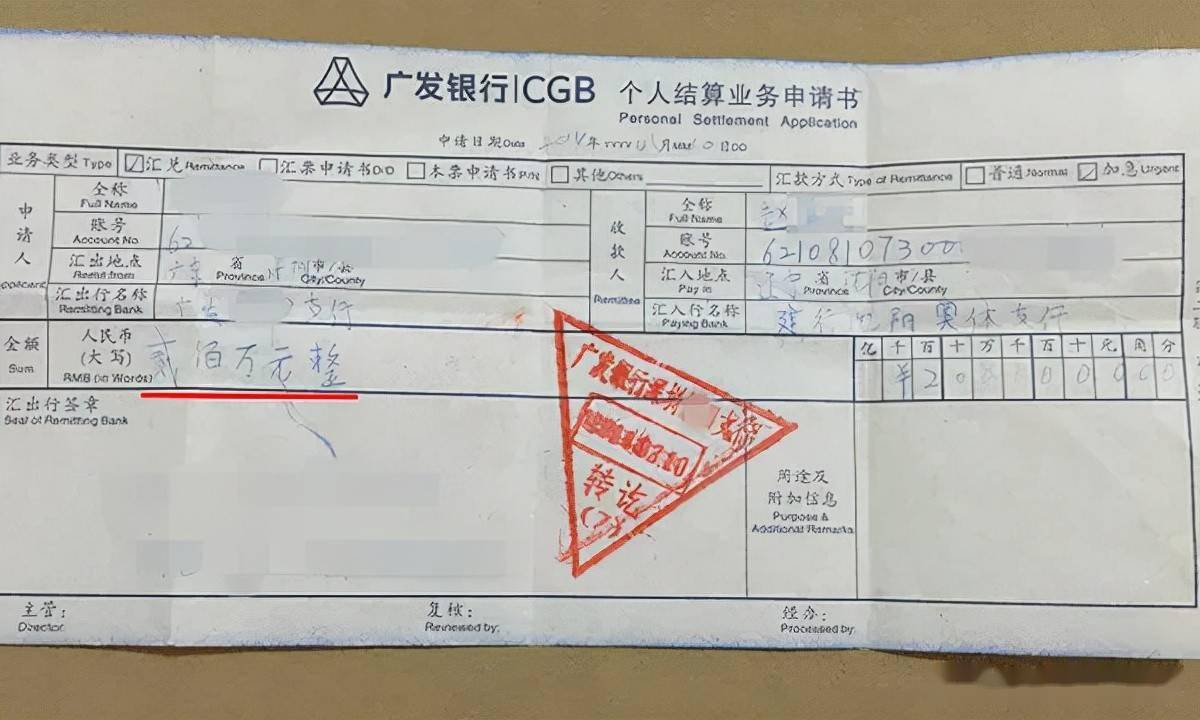 广发银行|CGB 个人结算业务申请书
Personal Settlement Application
申请日期Date 年 月 日
业务类型Type 汇兑Remittance 汇票申请书D/D 本票申请书P/N 其他Others 汇款方式Type of Remittance 普通Normal 加急Urgent
申请人
Applicant
全称
Full Name
账号
Account No.
62
汇出地点
Remit from
广东 省 Province 深圳 市/县 City/County
汇出行名称
Remitting Bank
广发 支行
收款人
Remittee
全称
Full Name
赵
账号
Account No.
62108107300
汇入地点
Pay in
辽宁 省 Province 沈阳 市/县 City/County
汇入行名称
Paying Bank
建行沈阳奥体支行
金额
Sum
人民币
(大写)
RMB(in Words)
贰佰万元整
亿 千 百 十 万 千 百 十 元 角 分
¥ 2 0 0 0 0 0 0 0 0
汇出行签章
Seal of Remitting Bank
广发银行深圳 支行
转讫
用途及
附加信息
Purpose &
Additional Remarks
主管:
Director:
复核:
Reviewed by:
经办:
Processed by: